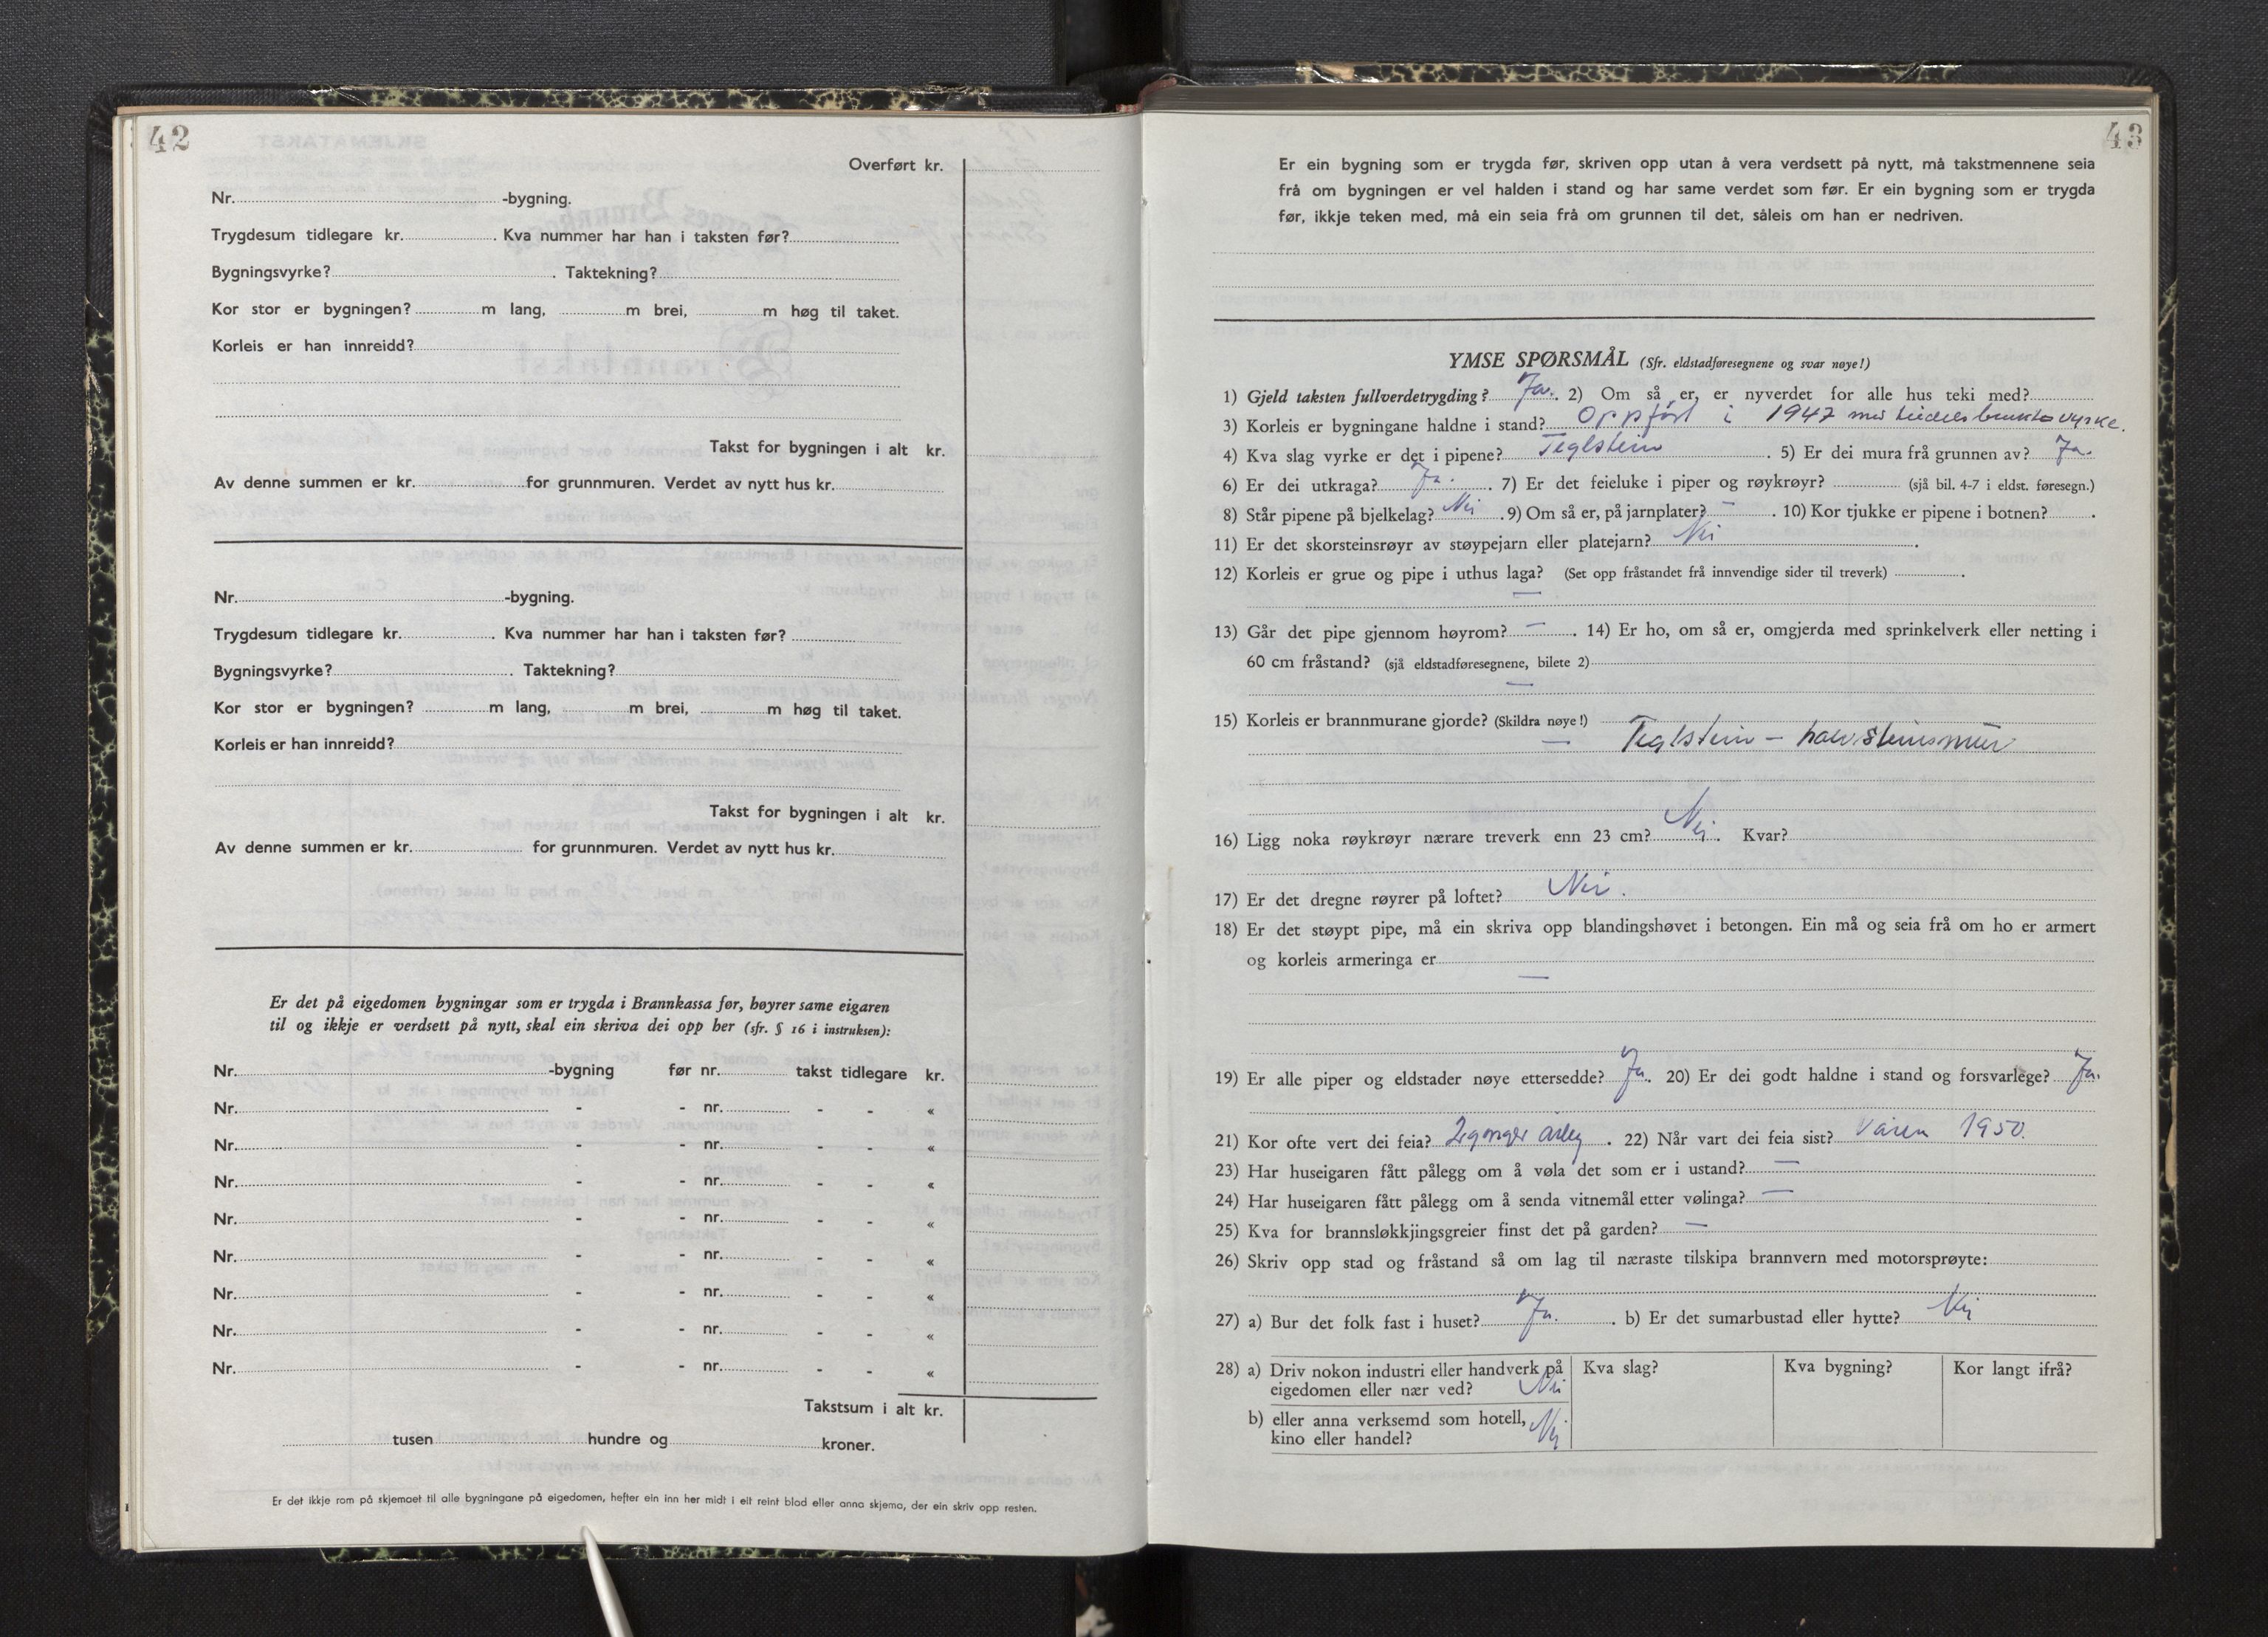 42
Overført kr.
Nr. -bygning.
Trygdesum tidlegare kr. . Kva nummer har han i taksten før?
Bygningsvyrke? . Taktekning?
Kor stor er bygningen? m lang, m brei, m høg til taket.
Korleis er han innreidd?
Takst for bygningen i alt kr.
Av denne summen er kr. for grunnmuren. Verdet av nytt hus kr.
Nr. -bygning.
Trygdesum tidlegare kr. . Kva nummer har han i taksten før?
Bygningsvyrke? . Taktekning?
Kor stor er bygningen? m lang, m brei, m høg til taket.
Korleis er han innreidd?
Takst for bygningen i alt kr.
Av denne summen er kr. for grunnmuren. Verdet av nytt hus kr.
Er det på eigedomen bygningar som er trygda i Brannkassa før, høyrer same eigaren
til og ikkje er verdsett på nytt, skal ein skriva dei opp her (sfr. § 16 i instruksen):
Nr. -bygning før nr. takst tidlegare kr.
Nr. - - nr. - - «
Nr. - - nr. - - «
Nr. - - nr. - - «
Nr. - - nr. - - «
Nr. - - nr. - - «
Nr. - - nr. - - «
Nr. - - nr. - - «
Nr. - - nr. - - «
Takstsum i alt kr.
tusen hundre og kroner.
Er det ikkje rom på skjemaet til alle bygningane på eigedomen, hefter ein inn her midt i eit reint blad eller anna skjema, der ein skriv opp resten.
43
Er ein bygning som er trygda før, skriven opp utan å vera verdsett på nytt, må takstmennene seia
frå om bygningen er vel halden i stand og har same verdet som før. Er ein bygning som er trygda
før, ikkje teken med, må ein seia frå om grunnen til det, såleis om han er nedriven.
YMSE SPØRSMÅL (Sfr. eldstadføresegnene og svar nøye!)
1) Gjeld taksten fullverdetrygding? Ja. 2) Om så er, er nyverdet for alle hus teki med?
3) Korleis er bygningane haldne i stand? Oppført i 1947 med vyrke.
4) Kva slag vyrke er det i pipene? Teglstein . 5) Er dei mura frå grunnen av? Ja.
6) Er dei utkraga? Ja. . 7) Er det feieluke i piper og røykrøyr? (sjå bil. 4-7 i eldst. føresegn.)
8) Står pipene på bjelkelag? Nei . 9) Om så er, på jarnplater? — . 10) Kor tjukke er pipene i botnen? .
11) Er det skorsteinsrøyr av støypejarn eller platejarn? Nei .
12) Korleis er grue og pipe i uthus laga? (Set opp fråstandet frå innvendige sider til treverk) .
—
13) Går det pipe gjennom høyrom? — . 14) Er ho, om så er, omgjerda med sprinkelverk eller netting i
60 cm fråstand? (sjå eldstadføresegnene, bilete 2)
—
15) Korleis er brannmurane gjorde? (Skildra nøye!)
— Teglstein - halvsteinsmur
16) Ligg noka røykrøyr nærare treverk enn 23 cm? Nei. Kvar?
17) Er det dregne røyrer på loftet? Nei.
18) Er det støypt pipe, må ein skriva opp blandingshøvet i betongen. Ein må og seia frå om ho er armert
og korleis armeringa er
—
19) Er alle piper og eldstader nøye ettersedde? Ja. 20) Er dei godt haldne i stand og forsvarlege? Ja.
21) Kor ofte vert dei feia? 2 gonger årleg . 22) Når vart dei feia sist? Våren 1950.
23) Har huseigaren fått pålegg om å vøla det som er i ustand? —
24) Har huseigaren fått pålegg om å senda vitnemål etter vølinga? —
25) Kva for brannsløkkjingsgreier finst det på garden? —
26) Skriv opp stad og fråstand så om lag til næraste tilskipa brannvern med motorsprøyte:
27) a) Bur det folk fast i huset? Ja. . b) Er det sumarbustad eller hytte? Nei
28) a) Driv nokon industri eller handverk på Kva slag? Kva bygning? Kor langt ifrå?
eigedomen eller nær ved? Nei
b) eller anna verksemd som hotell, Nei
kino eller handel?